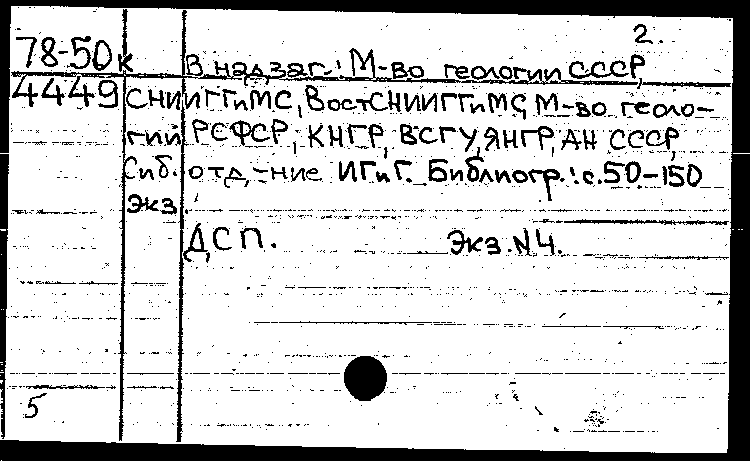 2.
78-50к В надзаг.: М-во геологии СССР,
4449 СНИИГГиМС, ВостСНИИГГиМС, М-во геоло-
гии РСФСР, КНГР, ВСГУ, ЯНГР, АН СССР,
Сиб. отд-ние ИГиГ. Библиогр.: с.50-150
экз.
ДСП. Экз. N4.
5